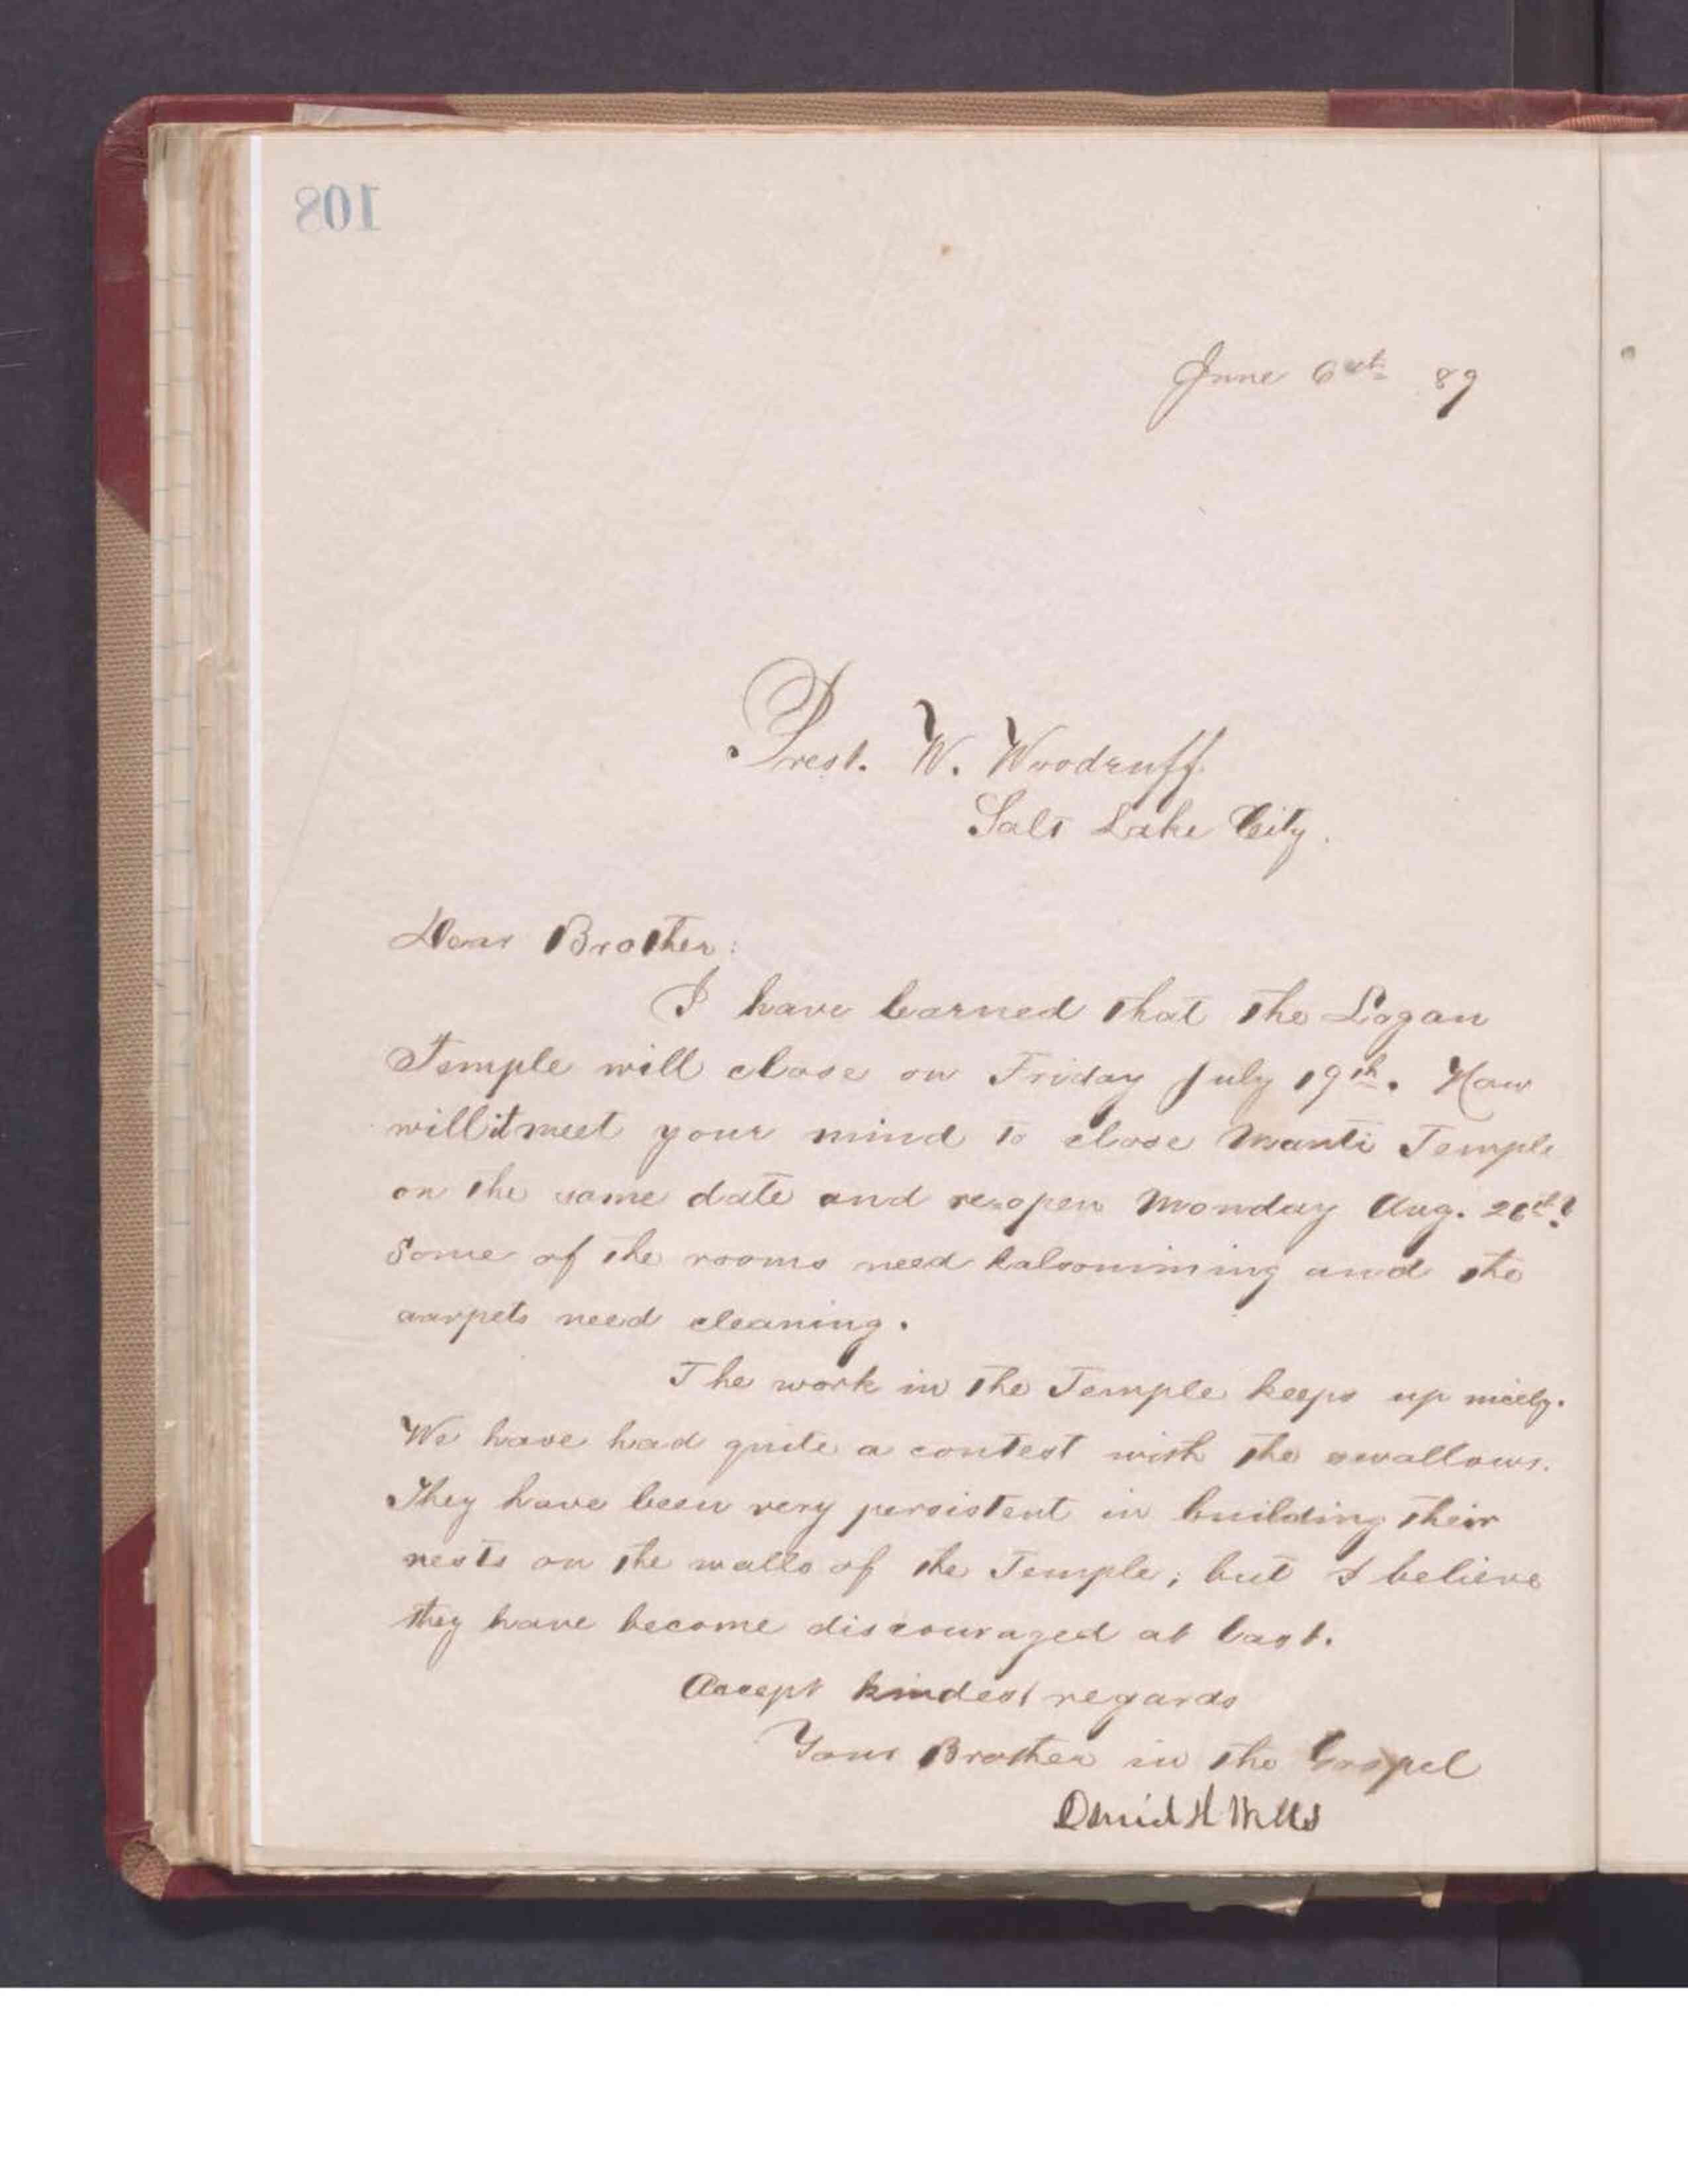 108
June 6th 89
Prest. W. Woodruff
Salt Lake City.
Dear Brother:
I have learned that the Logan
Temple will close on Friday July 19th. How
will it meet your mind to close Manti Temple
on the same date and re-open Monday Aug. 26th?
Some of the rooms need kalsomining and the
carpets need cleaning.
The work in the Temple keeps up nicely.
We have had quite a contest with the swallows.
They have been very persistent in building their
nests on the walls of the Temple; but I believe
they have become discouraged at last.
Accept kindest regards
Your Brother in the Gospel
Daniel H Wells